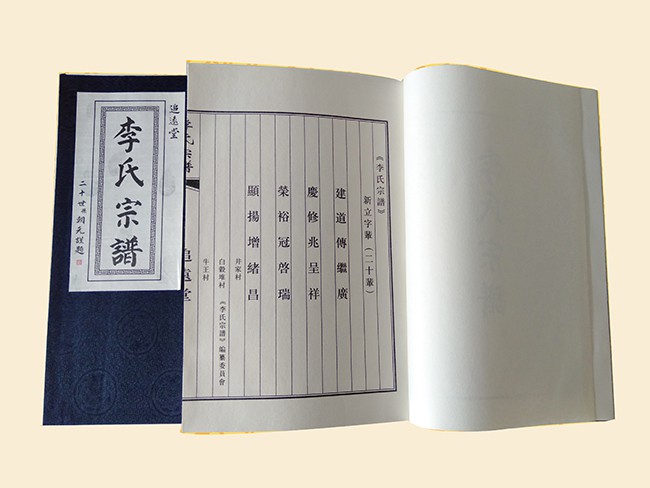 追遠堂
李氏宗譜
二十世
題
《李氏宗譜》
新立字輩（二十輩）
建道傳繼廣
慶修兆呈祥
榮裕冠啓瑞
顯揚增緒昌
井家村
白毅堆村
牛王村
《李氏宗譜》編纂委員會
李氏宗譜
追遠堂